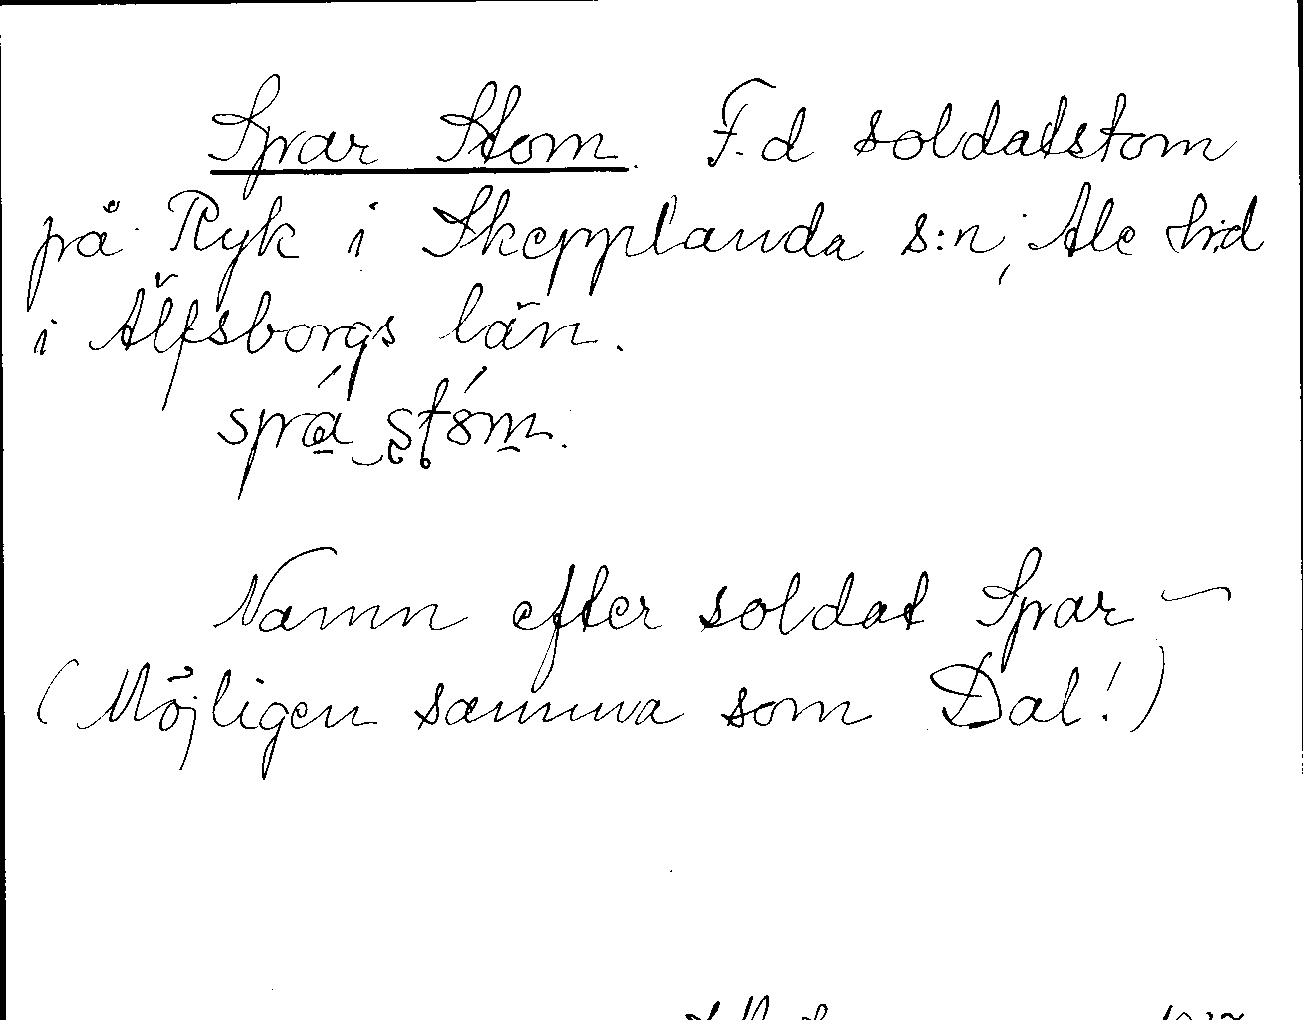 Spar Stom. F.d soldatstom
på Ryk i Skepplanda s:n, Ale hd
i Älfsborgs län.
sprá stóm.
Namn efter soldat Spar —
(Möjligen samma som Dal!)